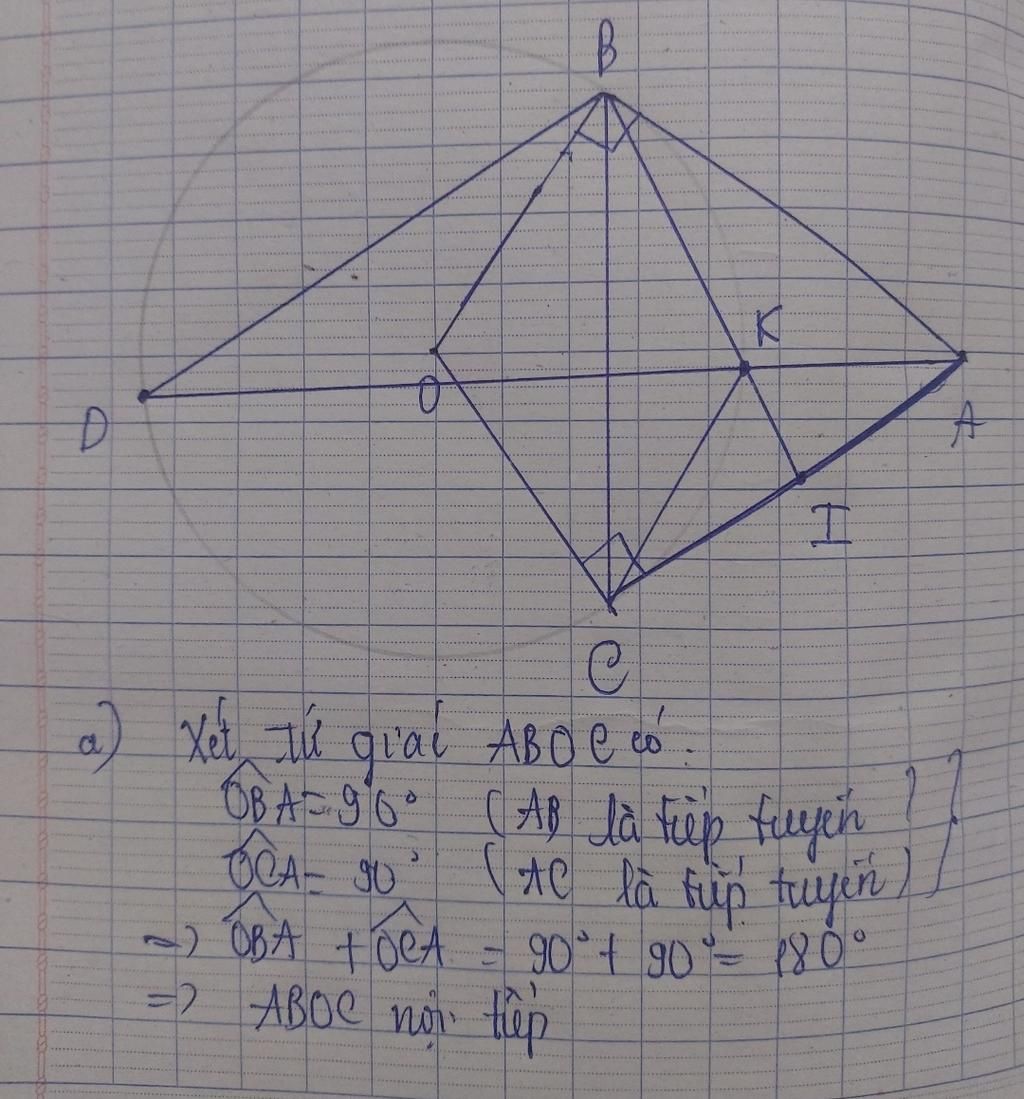 B
K
O
D
A
I
C
a) Xét tứ giác ABOC có:
OBA = 90° (AB là tiếp tuyến)
OCA = 90° (AC là tiếp tuyến)
=> OBA + OCA = 90° + 90° = 180°
=> ABOC nội tiếp